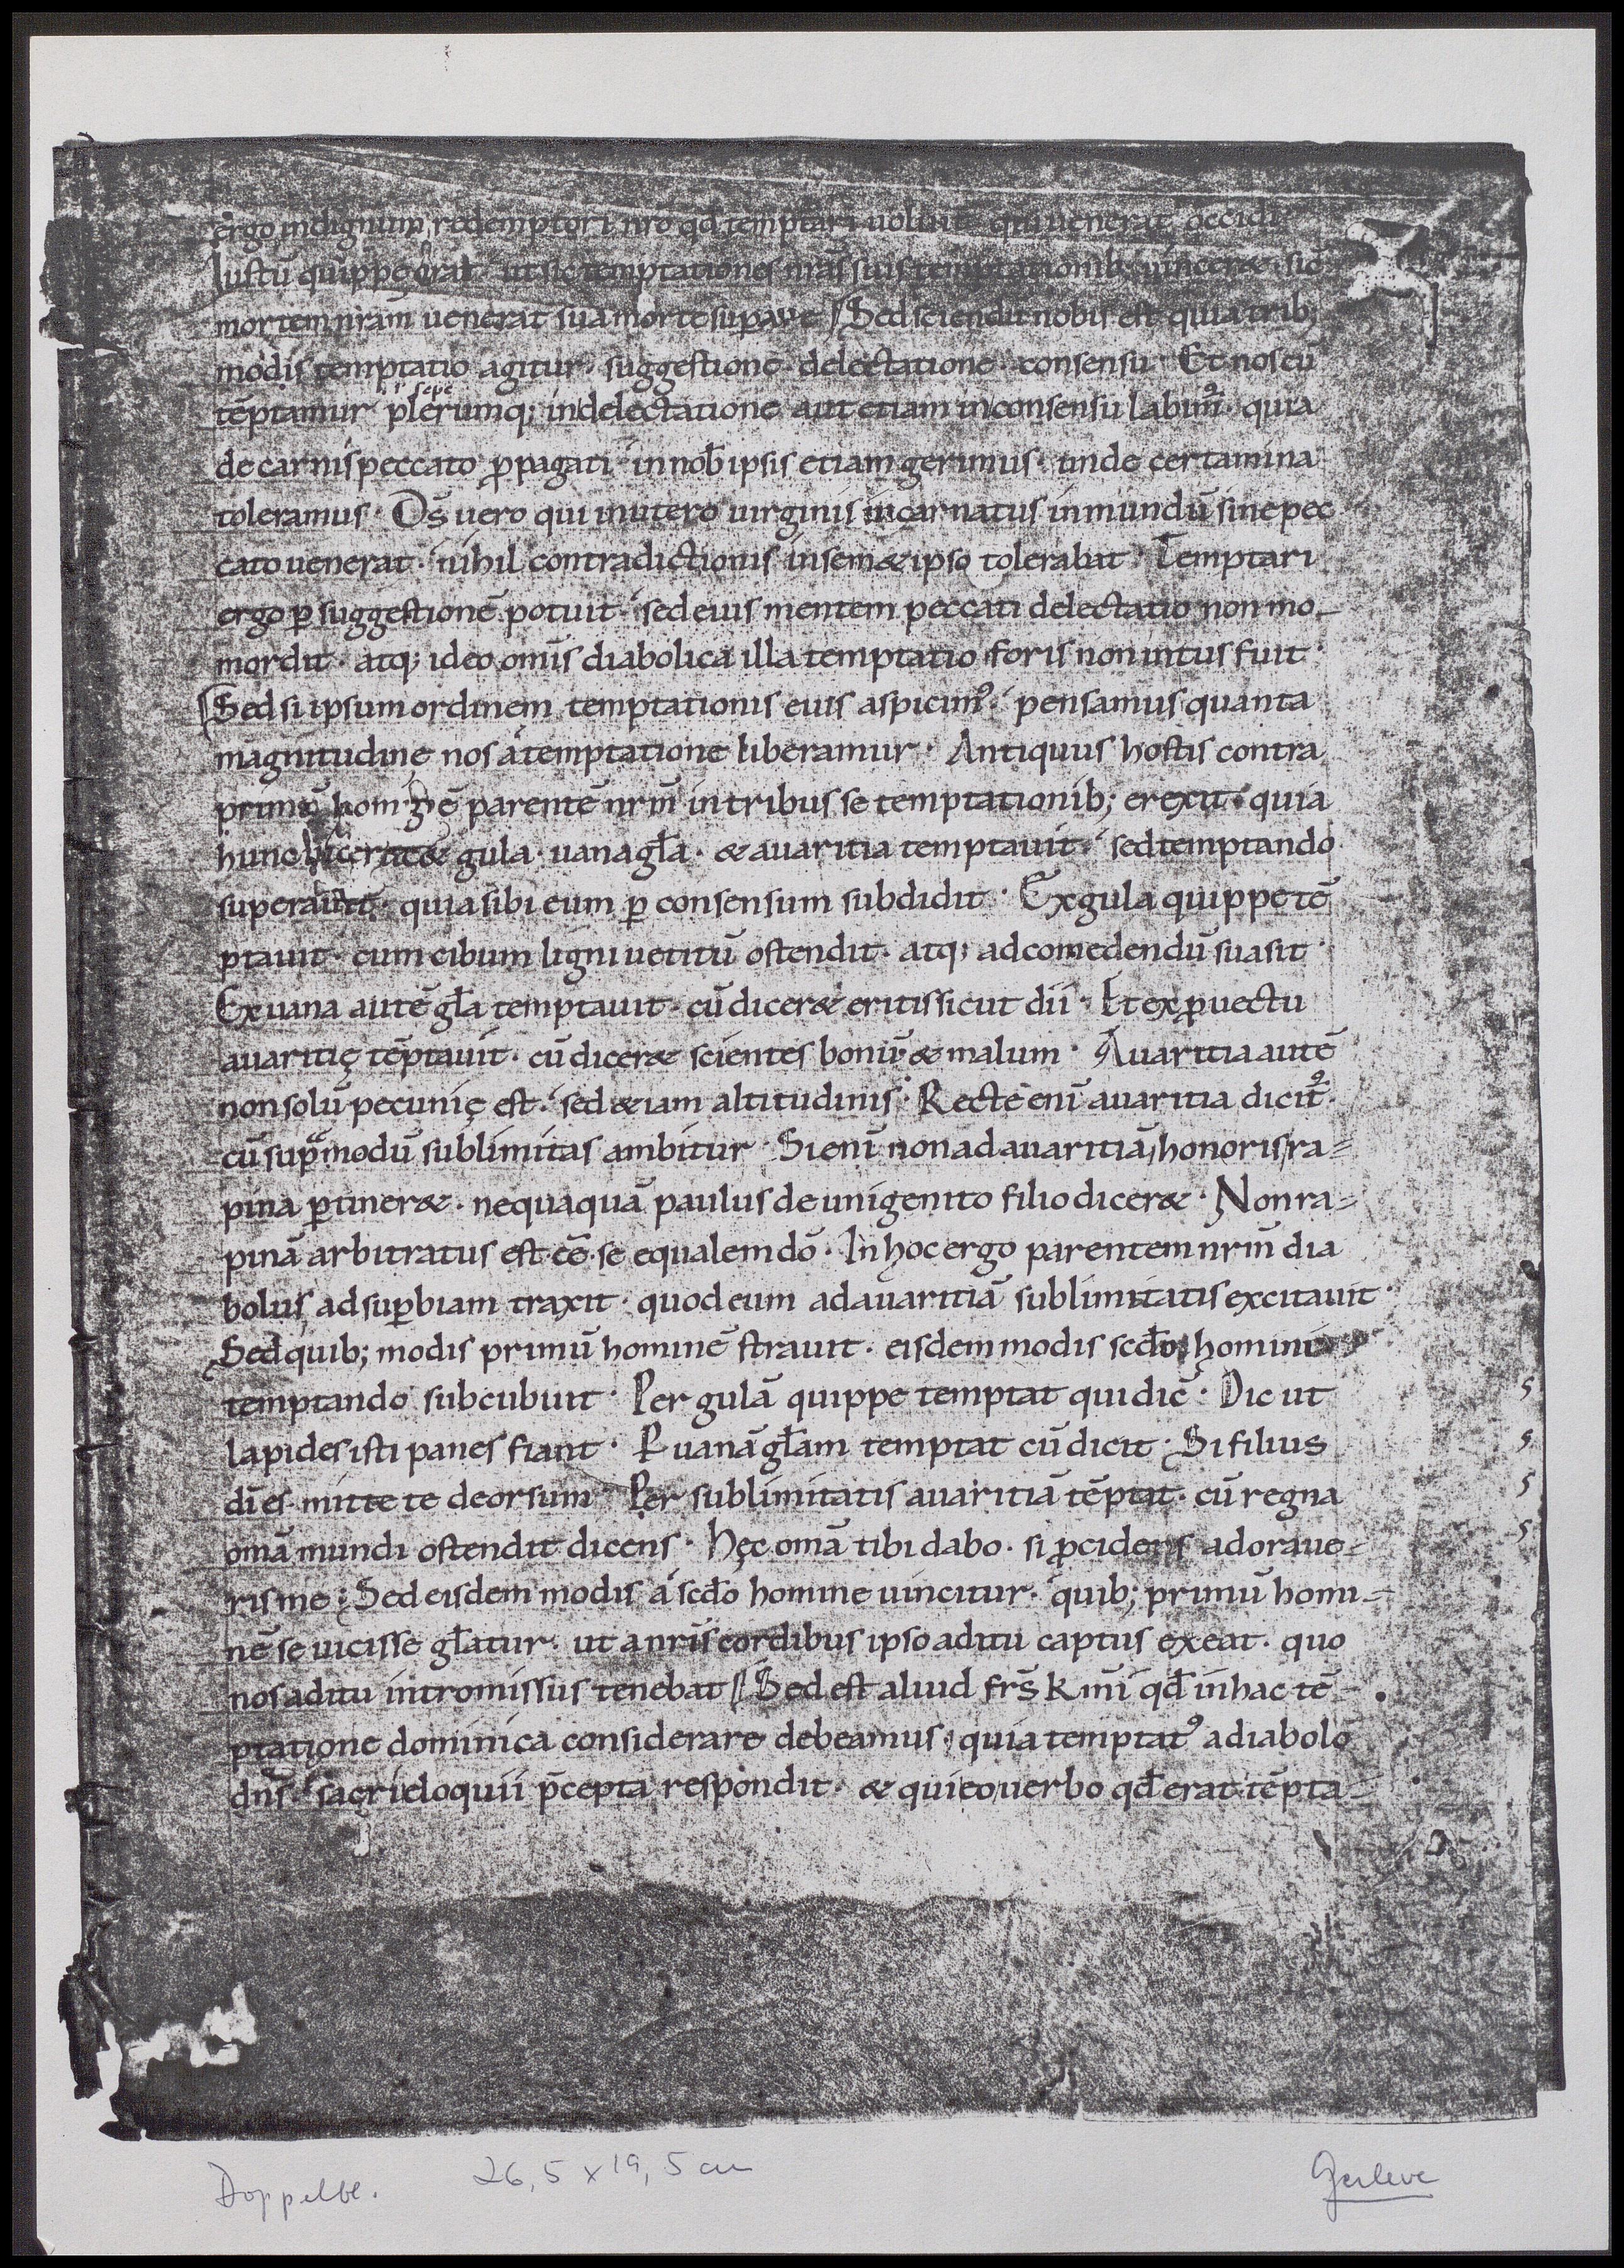 ergo indignum redemptori nr̄o qd̄ temptari uoluit qui uenerat occidi
Iustū quippe erat ut sic temptationes nr̄as suis temptationib; uincer&· sic
mortem nr̄am uenerat sua morte sup̱are Sed sciendū nobis est quia trib;
modis temptatio agitur· suggestione· delectatione· consensu· Et nos cū
tēptamur plerumq; in delectatione aut etiam in consensu labim᷒· quia
de carnis peccato ꝓpagati in nob̄ ipsis etiam gerimus· unde certamina
toleramus· D̄s uero qui in utero uirginis incarnatus in mundū sine pec
cato uenerat· nihil contradictionis in sem&ipso tolerabat· Temptari
ergo ꝑ suggestionē potuit· sed eius mentem peccati delectatio non mo-
mordit· atq; ideo om̄is diabolica illa temptatio foris non intus fuit·
Sed si ipsum ordinem temptationis eius aspicim᷒· pensamus quanta
magnitudine nos a temptatione liberamur· Antiquus hostis contra
primū hominē parentē nr̄m in tribus se temptationib; erexit· quia
hunc gula· uana gl̄a· & auaritia temptauit· sed temptando
superauit· quia sibi eum ꝑ consensum subdidit· Ex gula quippe tē
ptauit· cum cibum ligni uetitū ostendit· atq; ad comedendū suasit·
Ex uana autē gl̄a temptauit· cū dicer& eritis sicut dii· Et ex ꝓuectu
auaritię tēptauit· cū dicer& scientes bonū & malum· Auaritia autē
non solū pecunię est· sed &iam altitudinis· Recte enī auaritia dicit᷒·
cū supra modū sublimitas ambitur· Si enī non ad auaritiā honoris ra-
pina ꝑtiner&· nequaquā paulus de unigenito filio dicer&· Non ra-
pinā arbitratus est· eē· se equalem dō· In hoc ergo parentem nr̄m dia
bolus ad suꝑbiam traxit· quod eum ad auaritiā sublimitatis excitauit·
Sed quib; modis primū hominē strauit· eisdem modis scd̄o homini
temptando subcubuit· Per gulā quippe temptat qui dic̄· Dic ut
lapides isti panes fiant· P uanā gl̄am temptat cū dicit· Si filius
dī es· mitte te deorsum Per sublimitatis auaritiā tēptat· cū regna
om̄a mundi ostendit dicens· Hęc om̄a tibi dabo· si ꝓcidens adoraue-
ris me; Sed eisdem modis a scd̄o homine uincitur· quib; primū homi-
nē se uicisse gl̄atur· ut a nr̄is cordibus ipso aditu captus exeat· quo
nos aditu intromissus tenebat Sed est aliud fr̄s k̄mi qd̄ in hac tē-
ptatione dominica considerare debeamus· quia temptat᷒ a diabolo
dn̄s· sacri eloquii p̄cepta respondit· & qui eo uerbo qd̄ erat tēpta-
Doppelbl. 26,5 x 19,5 cm Gerleve